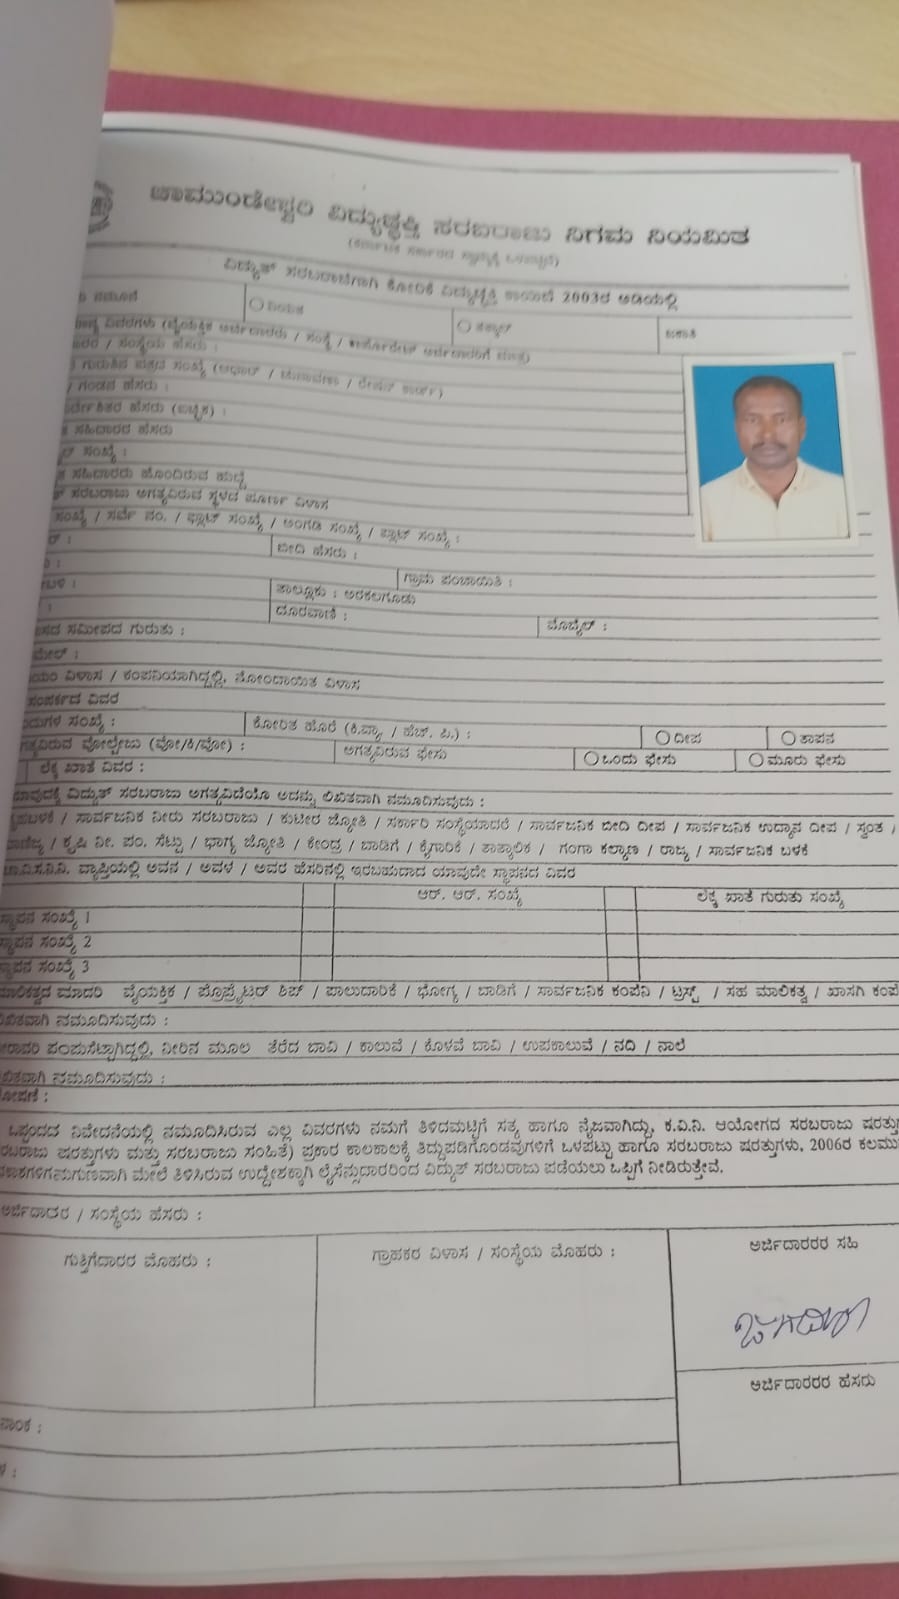 ಚಾಮುಂಡೇಶ್ವರಿ ವಿದ್ಯುಚ್ಛಕ್ತಿ ಸರಬರಾಜು ನಿಗಮ ನಿಯಮಿತ
(ಕರ್ನಾಟಕ ಸರ್ಕಾರದ ಸ್ವಾಮ್ಯಕ್ಕೆ ಒಳಪಟ್ಟಿದೆ)
ವಿದ್ಯುತ್ ಸರಬರಾಜಿಗಾಗಿ ಕೋರಿಕೆ ವಿದ್ಯುಚ್ಛಕ್ತಿ ಕಾಯಿದೆ 2003ರ ಅಡಿಯಲ್ಲಿ
ನಮೂನೆ ನಿಯತ ತತ್ಕಾಲ್ ಜಕಾತಿ
ವಿವರಗಳು (ವೈಯಕ್ತಿಕ ಅರ್ಜಿದಾರರು / ಸಂಸ್ಥೆ / ಕಾರ್ಪೋರೇಟ್ ಅರ್ಜಿದಾರರಿಗೆ ಮಾತ್ರ)
/ ಸಂಸ್ಥೆಯ ಹೆಸರು :
ಗುರುತಿನ ಪತ್ರದ ಸಂಖ್ಯೆ (ಆಧಾರ್ / ಚುನಾವಣಾ / ರೇಷನ್ ಕಾರ್ಡ್)
/ ಗಂಡನ ಹೆಸರು :
ಹೆಸರು (ಐಚ್ಛಿಕ) :
ಸಹಿದಾರರ ಹೆಸರು
ಸಂಖ್ಯೆ :
ಸಹಿದಾರರು ಹೊಂದಿರುವ ಹುದ್ದೆ
ಸರಬರಾಜು ಅಗತ್ಯವಿರುವ ಸ್ಥಳದ ಪೂರ್ಣ ವಿಳಾಸ
ಸಂಖ್ಯೆ / ಸರ್ವೆ ನಂ. / ಪ್ಲಾಟ್ ಸಂಖ್ಯೆ / ಅಂಗಡಿ ಸಂಖ್ಯೆ / ಫ್ಲಾಟ್ ಸಂಖ್ಯೆ :
ಬೀದಿ ಹೆಸರು :
ಗ್ರಾಮ ಪಂಚಾಯಿತಿ :
ತಾಲ್ಲೂಕು : ಅರಕಲಗೂಡು
ದೂರವಾಣಿ : ಮೊಬೈಲ್ :
ಸಮೀಪದ ಗುರುತು :
ವಿಳಾಸ / ಕಂಪನಿಯಾಗಿದ್ದಲ್ಲಿ, ನೋಂದಾಯಿತ ವಿಳಾಸ
ಸಂಪರ್ಕದ ವಿವರ
ಸಂಖ್ಯೆ : ಕೋರಿತ ಹೊರೆ (ಕಿ.ವ್ಯಾ / ಹೆಚ್. ಪಿ.) : ದೀಪ ತಾಪನ
ವೋಲ್ಟೇಜು (ವೋ/ಕಿ/ವೋ) : ಅಗತ್ಯವಿರುವ ಫೇಸು ಒಂದು ಫೇಸು ಮೂರು ಫೇಸು
ಲೆಕ್ಕ ಖಾತೆ ವಿವರ :
ವಿದ್ಯುತ್ ಸರಬರಾಜು ಅಗತ್ಯವಿದೆಯೋ ಅದನ್ನು ಲಿಖಿತವಾಗಿ ನಮೂದಿಸುವುದು :
/ ಸಾರ್ವಜನಿಕ ನೀರು ಸರಬರಾಜು / ಕುಟೀರ ಜ್ಯೋತಿ / ಸರ್ಕಾರಿ ಸಂಸ್ಥೆಯಾದರೆ / ಸಾರ್ವಜನಿಕ ಬೀದಿ ದೀಪ / ಸಾರ್ವಜನಿಕ ಉದ್ಯಾನ ದೀಪ / ಸ್ವಂತ /
/ ಕೃಷಿ ನೀ. ಪಂ. ಸೆಟ್ಟು / ಭಾಗ್ಯ ಜ್ಯೋತಿ / ಕೇಂದ್ರ / ಬಾಡಿಗೆ / ಕೈಗಾರಿಕೆ / ತಾತ್ಕಾಲಿಕ / ಗಂಗಾ ಕಲ್ಯಾಣ / ರಾಜ್ಯ / ಸಾರ್ವಜನಿಕ ಬಳಕೆ
ವ್ಯಾಪ್ತಿಯಲ್ಲಿ ಅವನ / ಅವಳ / ಅವರ ಹೆಸರಿನಲ್ಲಿ ಇರಬಹುದಾದ ಯಾವುದೇ ಸ್ಥಾಪನದ ವಿವರ
ಆರ್. ಆರ್. ಸಂಖ್ಯೆ ಲೆಕ್ಕ ಖಾತೆ ಗುರುತು ಸಂಖ್ಯೆ
ಸ್ಥಾಪನ ಸಂಖ್ಯೆ 1
ಸ್ಥಾಪನ ಸಂಖ್ಯೆ 2
ಸ್ಥಾಪನ ಸಂಖ್ಯೆ 3
ಮಾಲಿಕತ್ವದ ಮಾದರಿ ವೈಯಕ್ತಿಕ / ಪ್ರೊಪ್ರೈಟರ್ ಶಿಪ್ / ಪಾಲುದಾರಿಕೆ / ಭೋಗ್ಯ / ಬಾಡಿಗೆ / ಸಾರ್ವಜನಿಕ ಕಂಪನಿ / ಟ್ರಸ್ಟ್ / ಸಹ ಮಾಲಿಕತ್ವ / ಖಾಸಗಿ
ನಮೂದಿಸುವುದು :
ಪಂಪುಸೆಟ್ಟಾಗಿದ್ದಲ್ಲಿ, ನೀರಿನ ಮೂಲ ತೆರೆದ ಬಾವಿ / ಕಾಲುವೆ / ಕೊಳವೆ ಬಾವಿ / ಉಪಕಾಲುವೆ / ನದಿ / ನಾಲೆ
ನಮೂದಿಸುವುದು :
ಒಪ್ಪಂದದ ನಿವೇದನೆಯಲ್ಲಿ ನಮೂದಿಸಿರುವ ಎಲ್ಲ ವಿವರಗಳು ನಮಗೆ ತಿಳಿದಮಟ್ಟಿಗೆ ಸತ್ಯ ಹಾಗೂ ನೈಜವಾಗಿದ್ದು, ಕ.ವಿ.ನಿ. ಆಯೋಗದ ಸರಬರಾಜು
ಷರತ್ತುಗಳು ಮತ್ತು ಸರಬರಾಜು ಸಂಹಿತೆ) ಪ್ರಕಾರ ಕಾಲಕಾಲಕ್ಕೆ ತಿದ್ದುಪಡಿಗೊಂಡವುಗಳಿಗೆ ಒಳಪಟ್ಟು ಹಾಗೂ ಸರಬರಾಜು ಷರತ್ತುಗಳು, 2006ರ
ಮೇಲೆ ತಿಳಿಸಿರುವ ಉದ್ದೇಶಕ್ಕಾಗಿ ಲೈಸೆನ್ಸುದಾರರಿಂದ ವಿದ್ಯುತ್ ಸರಬರಾಜು ಪಡೆಯಲು ಒಪ್ಪಿಗೆ ನೀಡಿರುತ್ತೇವೆ.
ಅರ್ಜಿದಾರರ / ಸಂಸ್ಥೆಯ ಹೆಸರು :
ಗುತ್ತಿಗೆದಾರರ ಮೊಹರು : ಗ್ರಾಹಕರ ವಿಳಾಸ / ಸಂಸ್ಥೆಯ ಮೊಹರು : ಅರ್ಜಿದಾರರರ ಸಹಿ
ಅರ್ಜಿದಾರರರ ಹೆಸರು